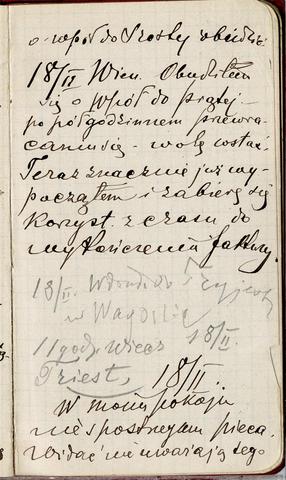 o wpół do szósty obudzić
18/II Wien. Obudziłem
się o wpół do piątej –
po półgodzinnem przewra-
caniu się – wolę wstać.
Teraz znacznie już wy-
począłem i zabieram się
korzyst. z czasu do
wykończenia faktury.
18/II. Wdrodze do Tryjestu
w Wagonie
11 godz. wiecz 18/II.
Triest, 18/II.
W moim pokoju
nie spostrzegam pieca.
Widać nie uważają tego